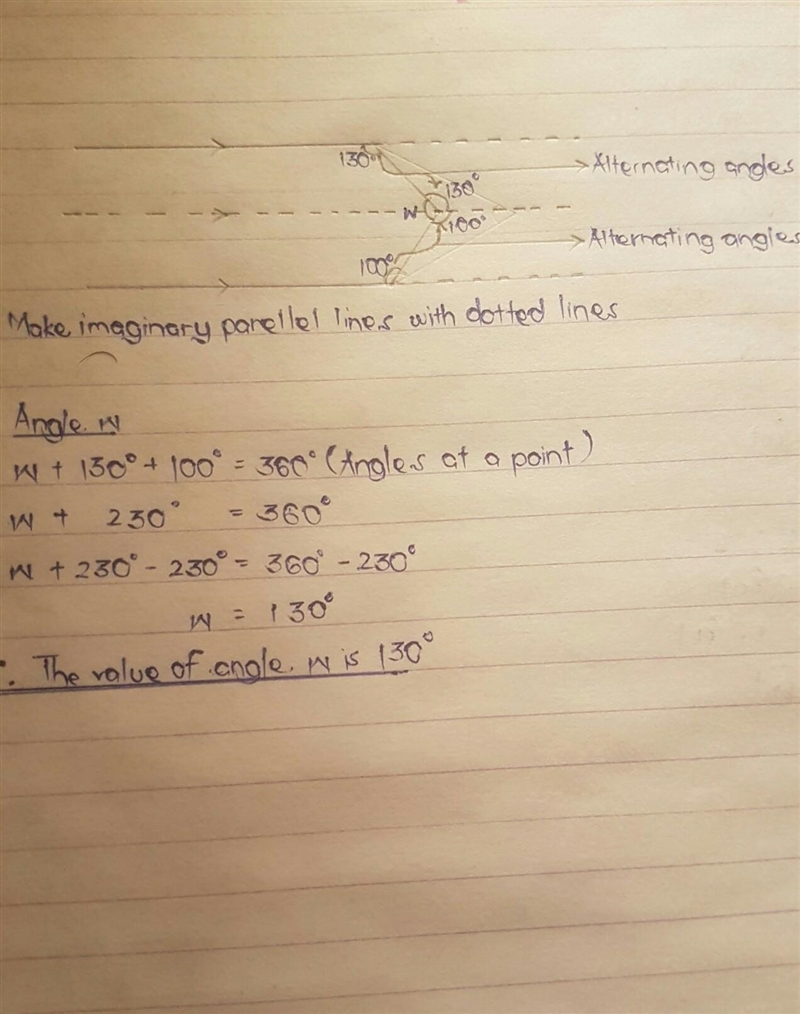 130°
Alternating angles
130°
W
100°
Alternating angles
100°
Make imaginary parellel lines with dotted lines
Angle W
W + 130° + 100° = 360° (Angles at a point)
W + 230° = 360°
W + 230° - 230° = 360° - 230°
W = 130°
∴ The value of angle W is 130°